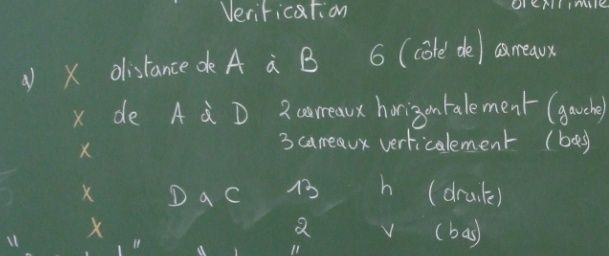 Verification
a) x distance de A à B 6 (côté de) carreaux
x de A à D 2 carreaux horizontalement (gauche)
x 3 carreaux verticalement (bas)
x D a C 13 h (droite)
x 2 v (bas)